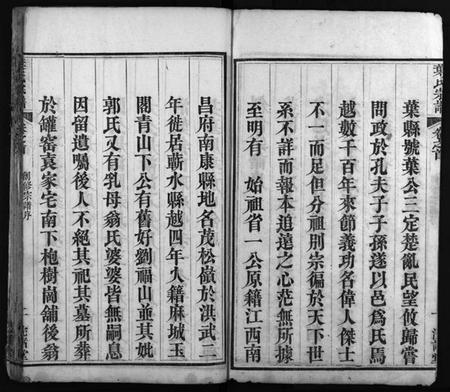 葉氏宗譜
卷之首
葉縣號葉公三定楚亂民望攸歸嘗
問政於孔夫子子孫遂以邑為氏焉
越數千百年來節義功名偉人傑士
不一而足但分祖別宗徧於天下世
系不詳而報本追遠之心茫無所據
至明有 始祖省一公原籍江西南
昌府南康縣地名茂松嶺於洪武二
年徙居蘄水縣越四年入籍麻城玉
閣青山下公有舊好劉福山並其妣
郭氏又有乳母翁氏婆婆皆無嗣息
因留遺囑後人不絕其祀其墓所葬
於罐窑袁家宅南下枹樹崗舖後翁
創修宗譜序